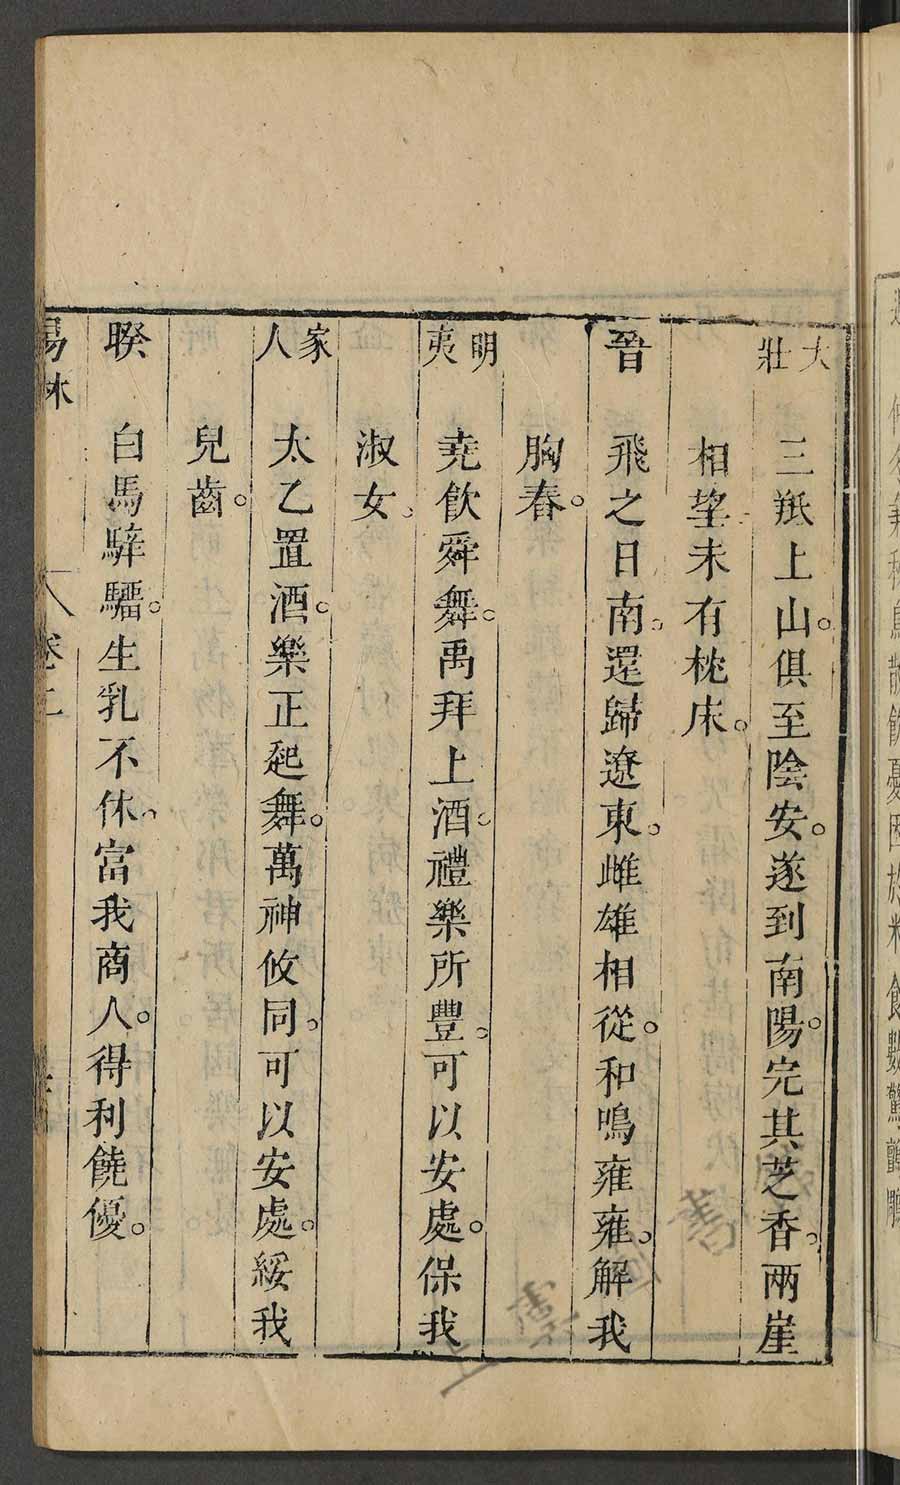 大壯 三羝上山。俱至陰安。遂到南陽。完其芝香。兩崖
相望未有枕床。
晉 飛之日南。還歸遼東。雌雄相從。和鳴雍雍。解我
胸春。
明夷 堯飲舜舞。禹拜上酒。禮樂所豐。可以安處。保我
淑女。
家人 太乙置酒。樂正起舞。萬神攸同。可以安處。綏我
兒齒。
睽 白馬騂騮。生乳不休。富我商人。得利饒優。
易林 卷二